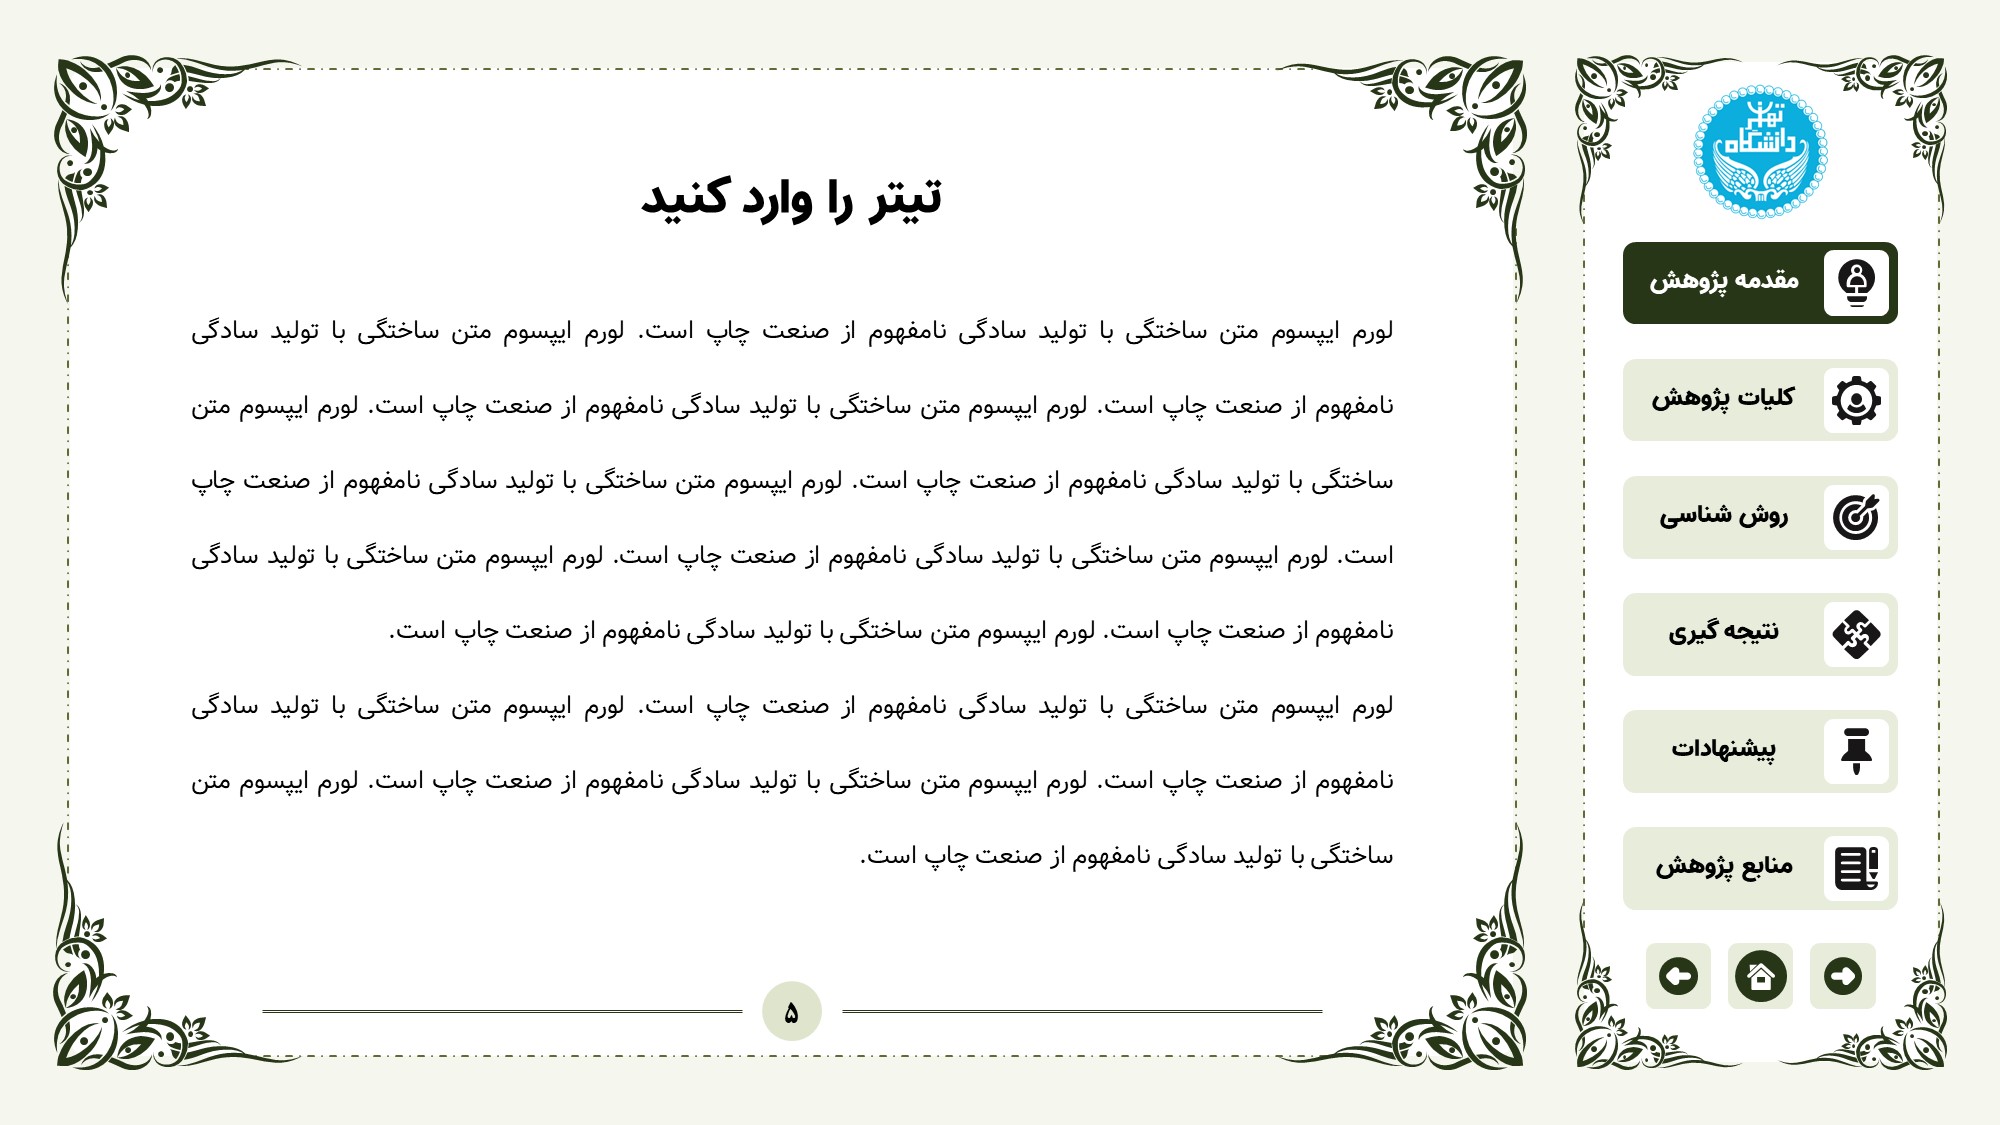 تیتر را وارد کنید
لورم ایپسوم متن ساختگی با تولید سادگی نامفهوم از صنعت چاپ است. لورم ایپسوم متن ساختگی با تولید سادگی
نامفهوم از صنعت چاپ است. لورم ایپسوم متن ساختگی با تولید سادگی نامفهوم از صنعت چاپ است. لورم ایپسوم متن
ساختگی با تولید سادگی نامفهوم از صنعت چاپ است. لورم ایپسوم متن ساختگی با تولید سادگی نامفهوم از صنعت چاپ
است. لورم ایپسوم متن ساختگی با تولید سادگی نامفهوم از صنعت چاپ است. لورم ایپسوم متن ساختگی با تولید سادگی
نامفهوم از صنعت چاپ است. لورم ایپسوم متن ساختگی با تولید سادگی نامفهوم از صنعت چاپ است.
لورم ایپسوم متن ساختگی با تولید سادگی نامفهوم از صنعت چاپ است. لورم ایپسوم متن ساختگی با تولید سادگی
نامفهوم از صنعت چاپ است. لورم ایپسوم متن ساختگی با تولید سادگی نامفهوم از صنعت چاپ است. لورم ایپسوم متن
ساختگی با تولید سادگی نامفهوم از صنعت چاپ است.
۵
تهران
دانشگاه
مقدمه پژوهش
کلیات پژوهش
روش شناسی
نتیجه گیری
پیشنهادات
منابع پژوهش